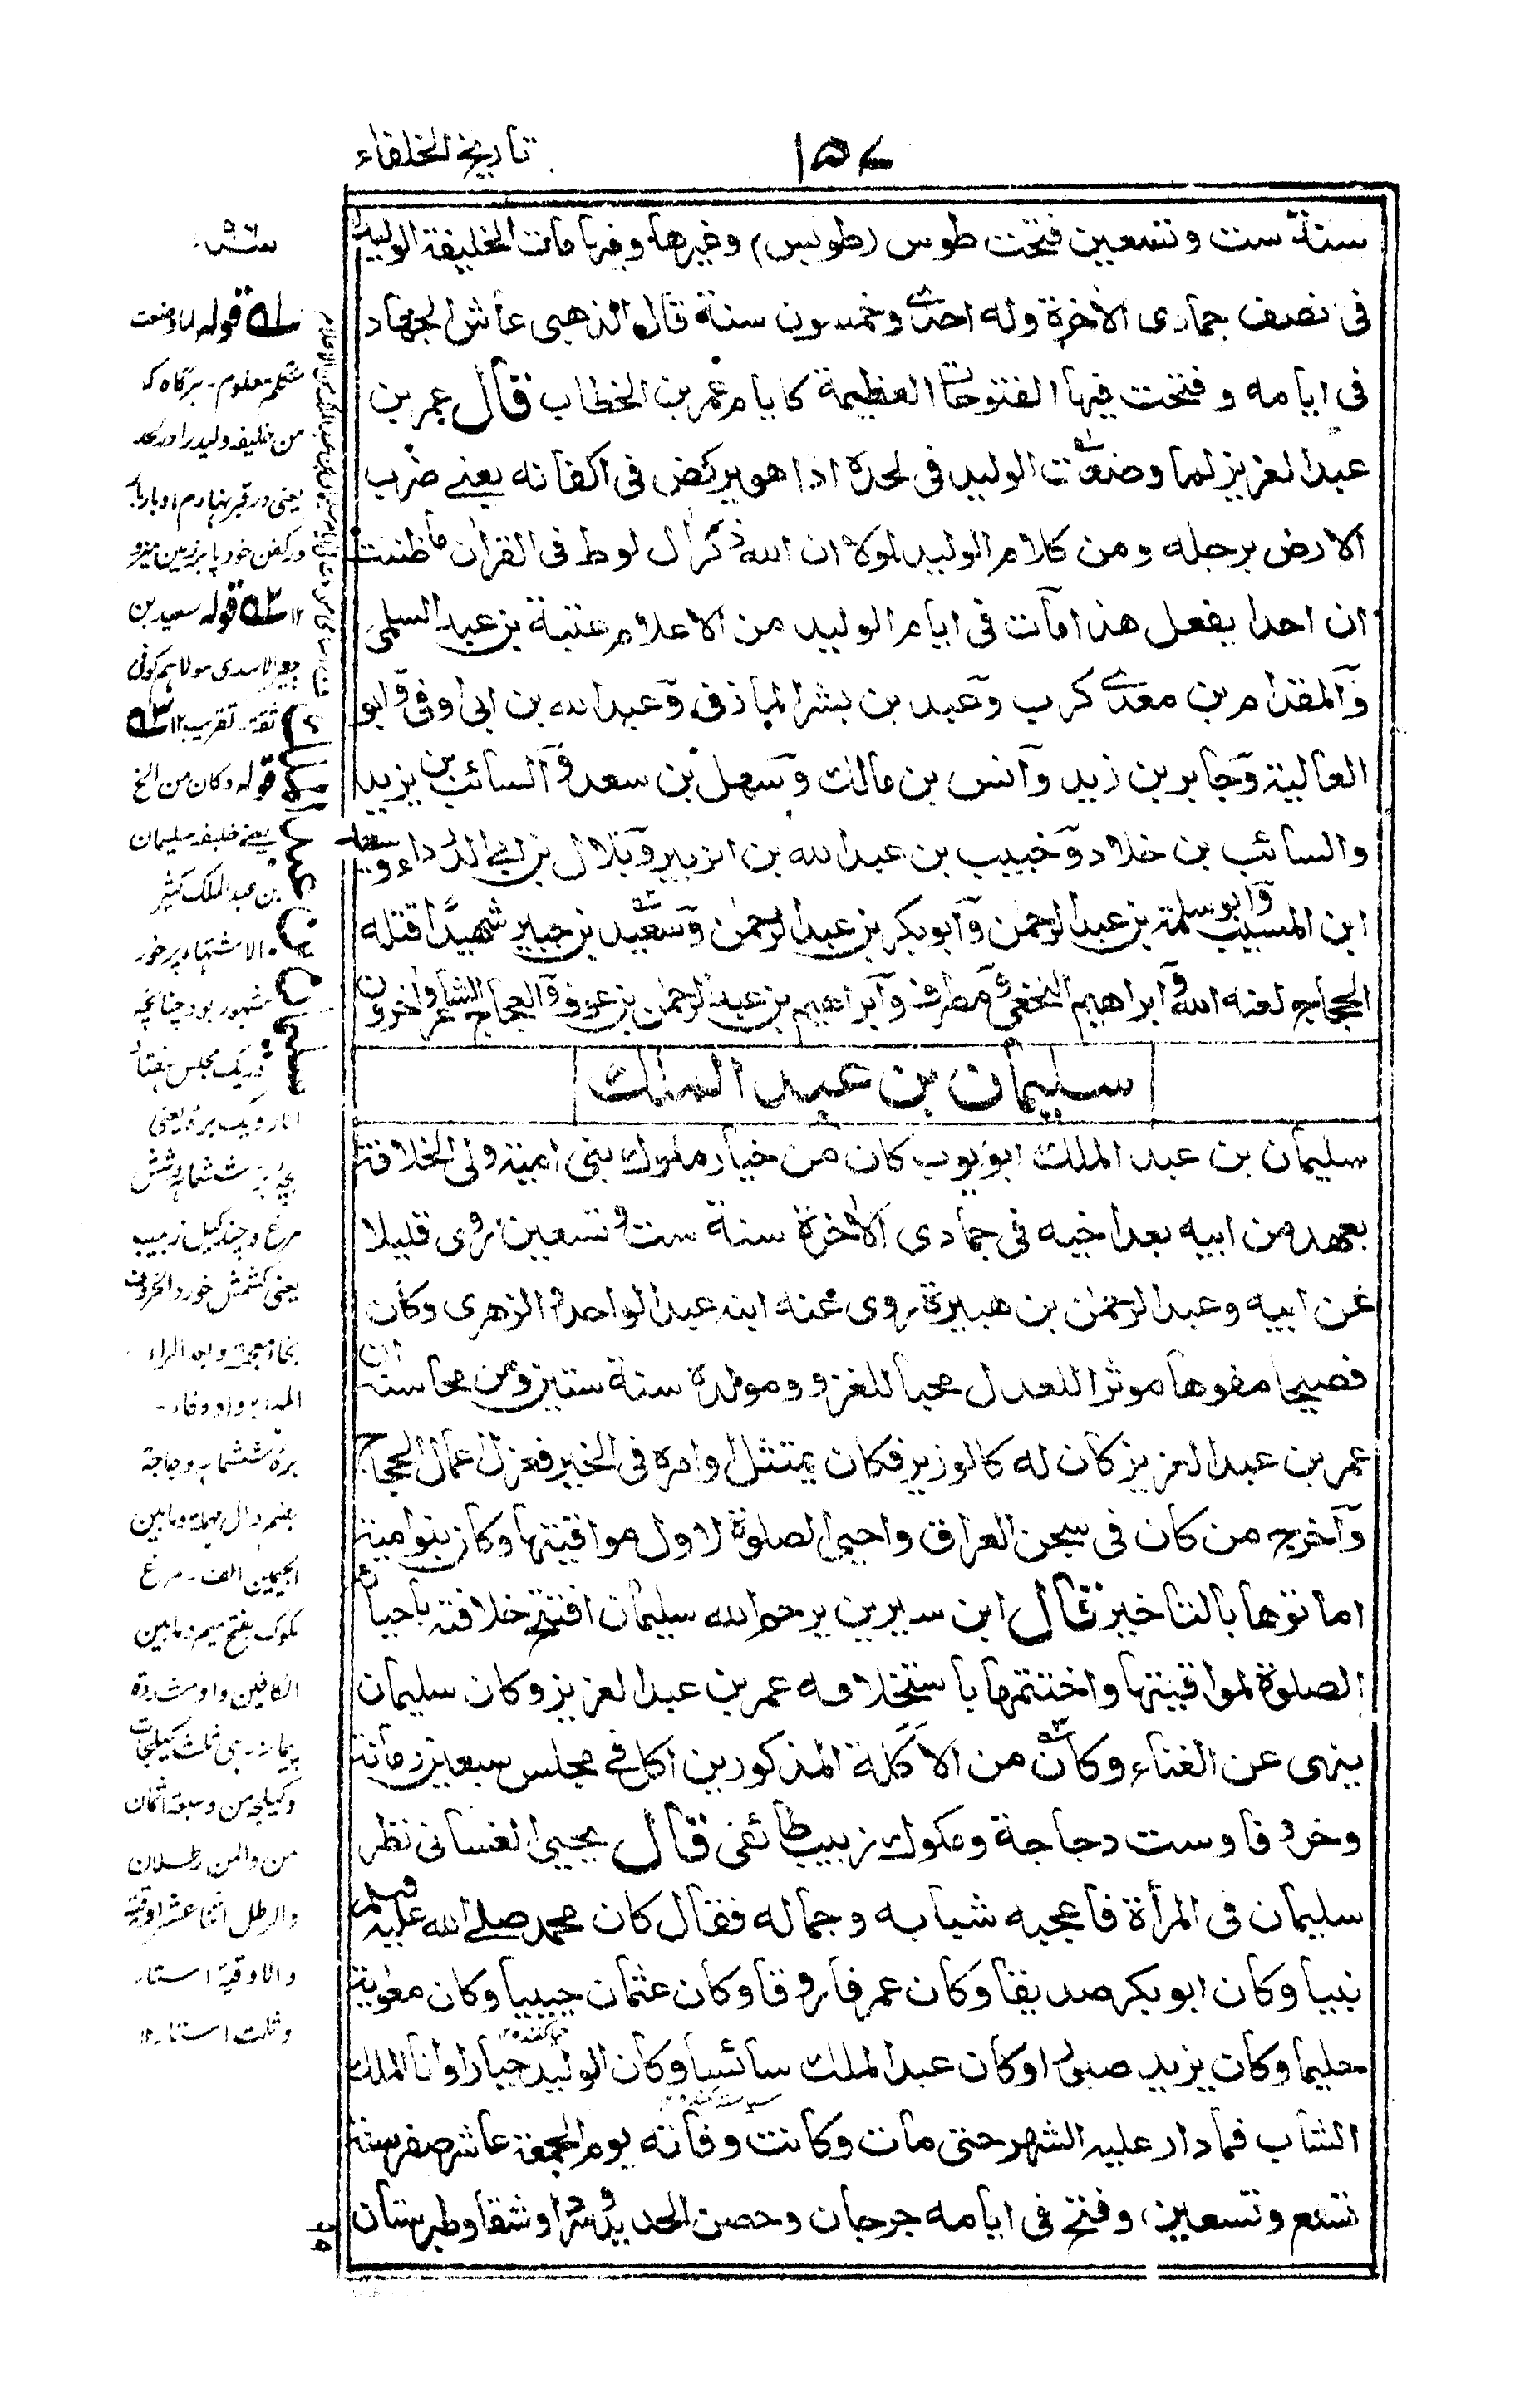 ١٥٧
تاريخ الخلفاء
سنة ست وتسعين فتحت طوس (طويس) وغيرها وفيها مات الخليفة الوليد
فى نصف جمادى الاخرة وله احدى وخمسون سنة قال الذهبى عاش الجهاد
فى ايامه وفتحت فيها الفتوحات العظيمة كايام عمر بن الخطاب قال عمر بن
عبد العزيز لما وضعت الوليد فى لحده اذا هو يركض فى اكفانه يعنے ضرب
الارض برجله ومن كلام الوليد لولا ان الله ذكر آل لوط فى القران ما ظننت
ان احدا يفعل هذا مات فى ايام الوليد من الاعلام عتبة بن عبد السلمى
والمقدام بن معدے كرب وعبد بن بشر المازنى وعبد الله بن ابى اوفى وابو
العالية وجابر بن زيد وانس بن مالك وسهل بن سعد والسائب بن يزيد
والسائب بن خلاد وخبيب بن عبد الله بن الزبير وبلال بن ابے الدرداء وسعيد
ابن المسيب وابو سلمة بن عبد الرحمن وابو بكر بن عبد الرحمن وسعيد بن جبير شهيدا قتله
الحجاج لعنه الله وابراهيم النخعى ومطرف وابراهيم بن عبد الرحمن بن عوف والعجاج الشاعر واخرون
سليمان بن عبد الملك
سليمان بن عبد الملك ابو ايوب كان من خيار ملوك بنى امية ولى الخلافة
بعهد من ابيه بعد اخيه فى جمادى الاخرة سنة ست وتسعين روى قليلا
عن ابيه وعبد الرحمن بن هبيرة روى عنه ابنه عبد الواحد والزهرى وكان
فصيحا مفوها موثرا للعدل محبا للغزو ومولده سنة ستين ومن محاسنه ان
عمر بن عبد العزيز كان له كالوزير فكان يمتثل اوامره فى الخير فعزل عمال الحجاج
واخرج من كان فى سجن العراق واحيى الصلوة لاول مواقيتها وكان بنو امية
اماتوها بالتاخير قال ابن سيرين يرحم الله سليمان افتتح خلافته باحياء
الصلوة لمواقيتها واختتمها باستخلافه عمر بن عبد العزيز وكان سليمان
ينهى عن الغناء وكان من الاكلة المذكورين اكل فے مجلس سبعين رمانة
وخروفا وست دجاجة ومكوك زبيب طائفى قال يحيى الغسانى نظر
سليمان فى المرأة فاعجبه شبابه وجماله فقال كان محمد صلے الله عليه وسلم
نبيا وكان ابو بكر صديقا وكان عمر فاروقا وكان عثمان حييا وكان معوية
حليما وكان يزيد صبورا وكان عبد الملك سائسا وكان الوليد جبارا وانا الملك
الشاب فما دار عليه الشهر حتى مات وكانت وفاته يوم الجمعة عاشر صفر سنة
تسع وتسعين، وفتح فى ايامه جرجان وحصن الحديد وسردا وشقا وطبرستان
سنة ٩٦
۱ قوله لما وضعت
متكلم معلوم - هرگاه كه
من خليفه وليد را در لحد
در كفن خود پا بر زمين
۲ قوله سعيد بن
جبير الاسدى مولاهم كوفى
ثقة - تقريب ۱۲ ۳
قوله وكان من الخ
يعنے خليفه سليمان
بن عبد الملك كثير
الاشتهاء پرخور
مشهور بود چنانچه
در يك مجلس هفتاد
انار ويك بره يعنى
بچه بز ششماهه وشش
مرغ وچند كيل زبيب
يعنى كشمش خورد الخروف
بخاء معجمة وبعد الراء
المهملة واو وفاء -
بره ششماهه دجاجة
بضم دال مهملة ومابين
الجيمين الف - مرغ
مكوك بفتح ميم ومابين
الكافين واو مشددة
وكيلجه من وسبعة اثمان
من والمن رطلان
والرطل اثنا عشر اوقية
والاوقية استار
وثلث استار ۱۲
سليمان بن عبد الملك
٩٩